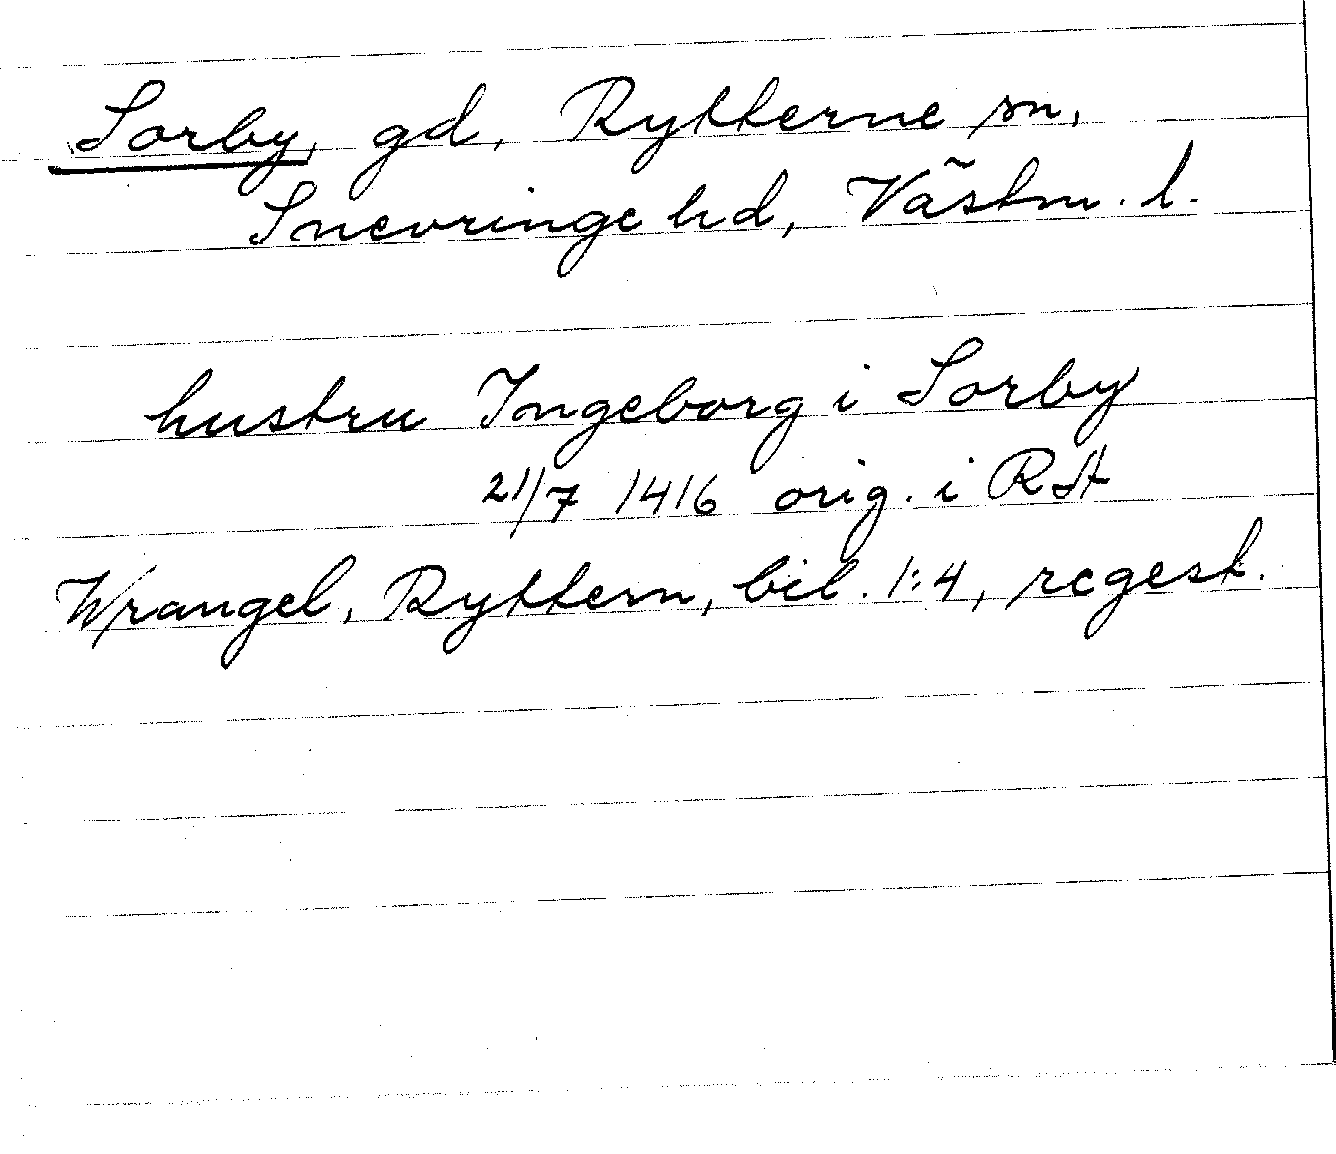 Sorby, gd, Rytterne sn,
Snevringe hd, Västm. l.
hustru Ingeborg i Sorby
21/7 1416 orig. i RA
Wrangel, Ryttern, bil. 1:4, regest.